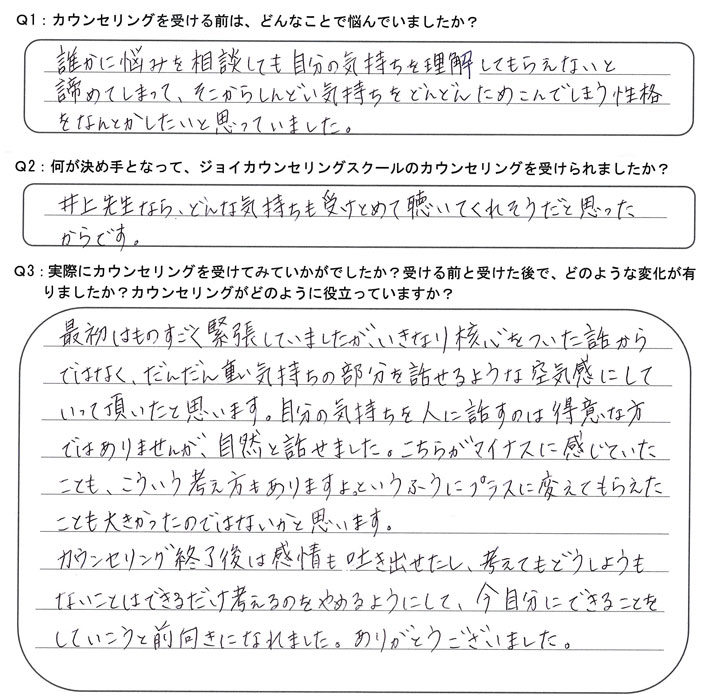 Q1：カウンセリングを受ける前は、どんなことで悩んでいましたか？
誰かに悩みを相談しても自分の気持ちを理解してもらえないと
諦めてしまって、そこからしんどい気持ちをどんどんためこんでしまう性格
をなんとかしたいと思っていました。
Q2：何が決め手となって、ジョイカウンセリングスクールのカウンセリングを受けられましたか？
井上先生なら、どんな気持ちも受けとめて聴いてくれそうだと思った
からです。
Q3：実際にカウンセリングを受けてみていかがでしたか？受ける前と受けた後で、どのような変化が有
りましたか？カウンセリングがどのように役立っていますか？
最初はものすごく緊張していましたが、いきなり核心をついた話から
ではなく、だんだん重い気持ちの部分を話せるような空気感にして
いって頂いたと思います。自分の気持ちを人に話すのは得意な方
ではありませんが、自然と話せました。こちらがマイナスに感じていた
ことも、こういう考え方もありますよっというふうにプラスに変えてもらえた
ことも大きかったのではないかと思います。
カウンセリング終了後は感情も吐き出せたし、考えてもどうしようも
ないことはできるだけ考えるのをやめるようにして、今自分にできることを
していこうと前向きになれました。ありがとうございました。